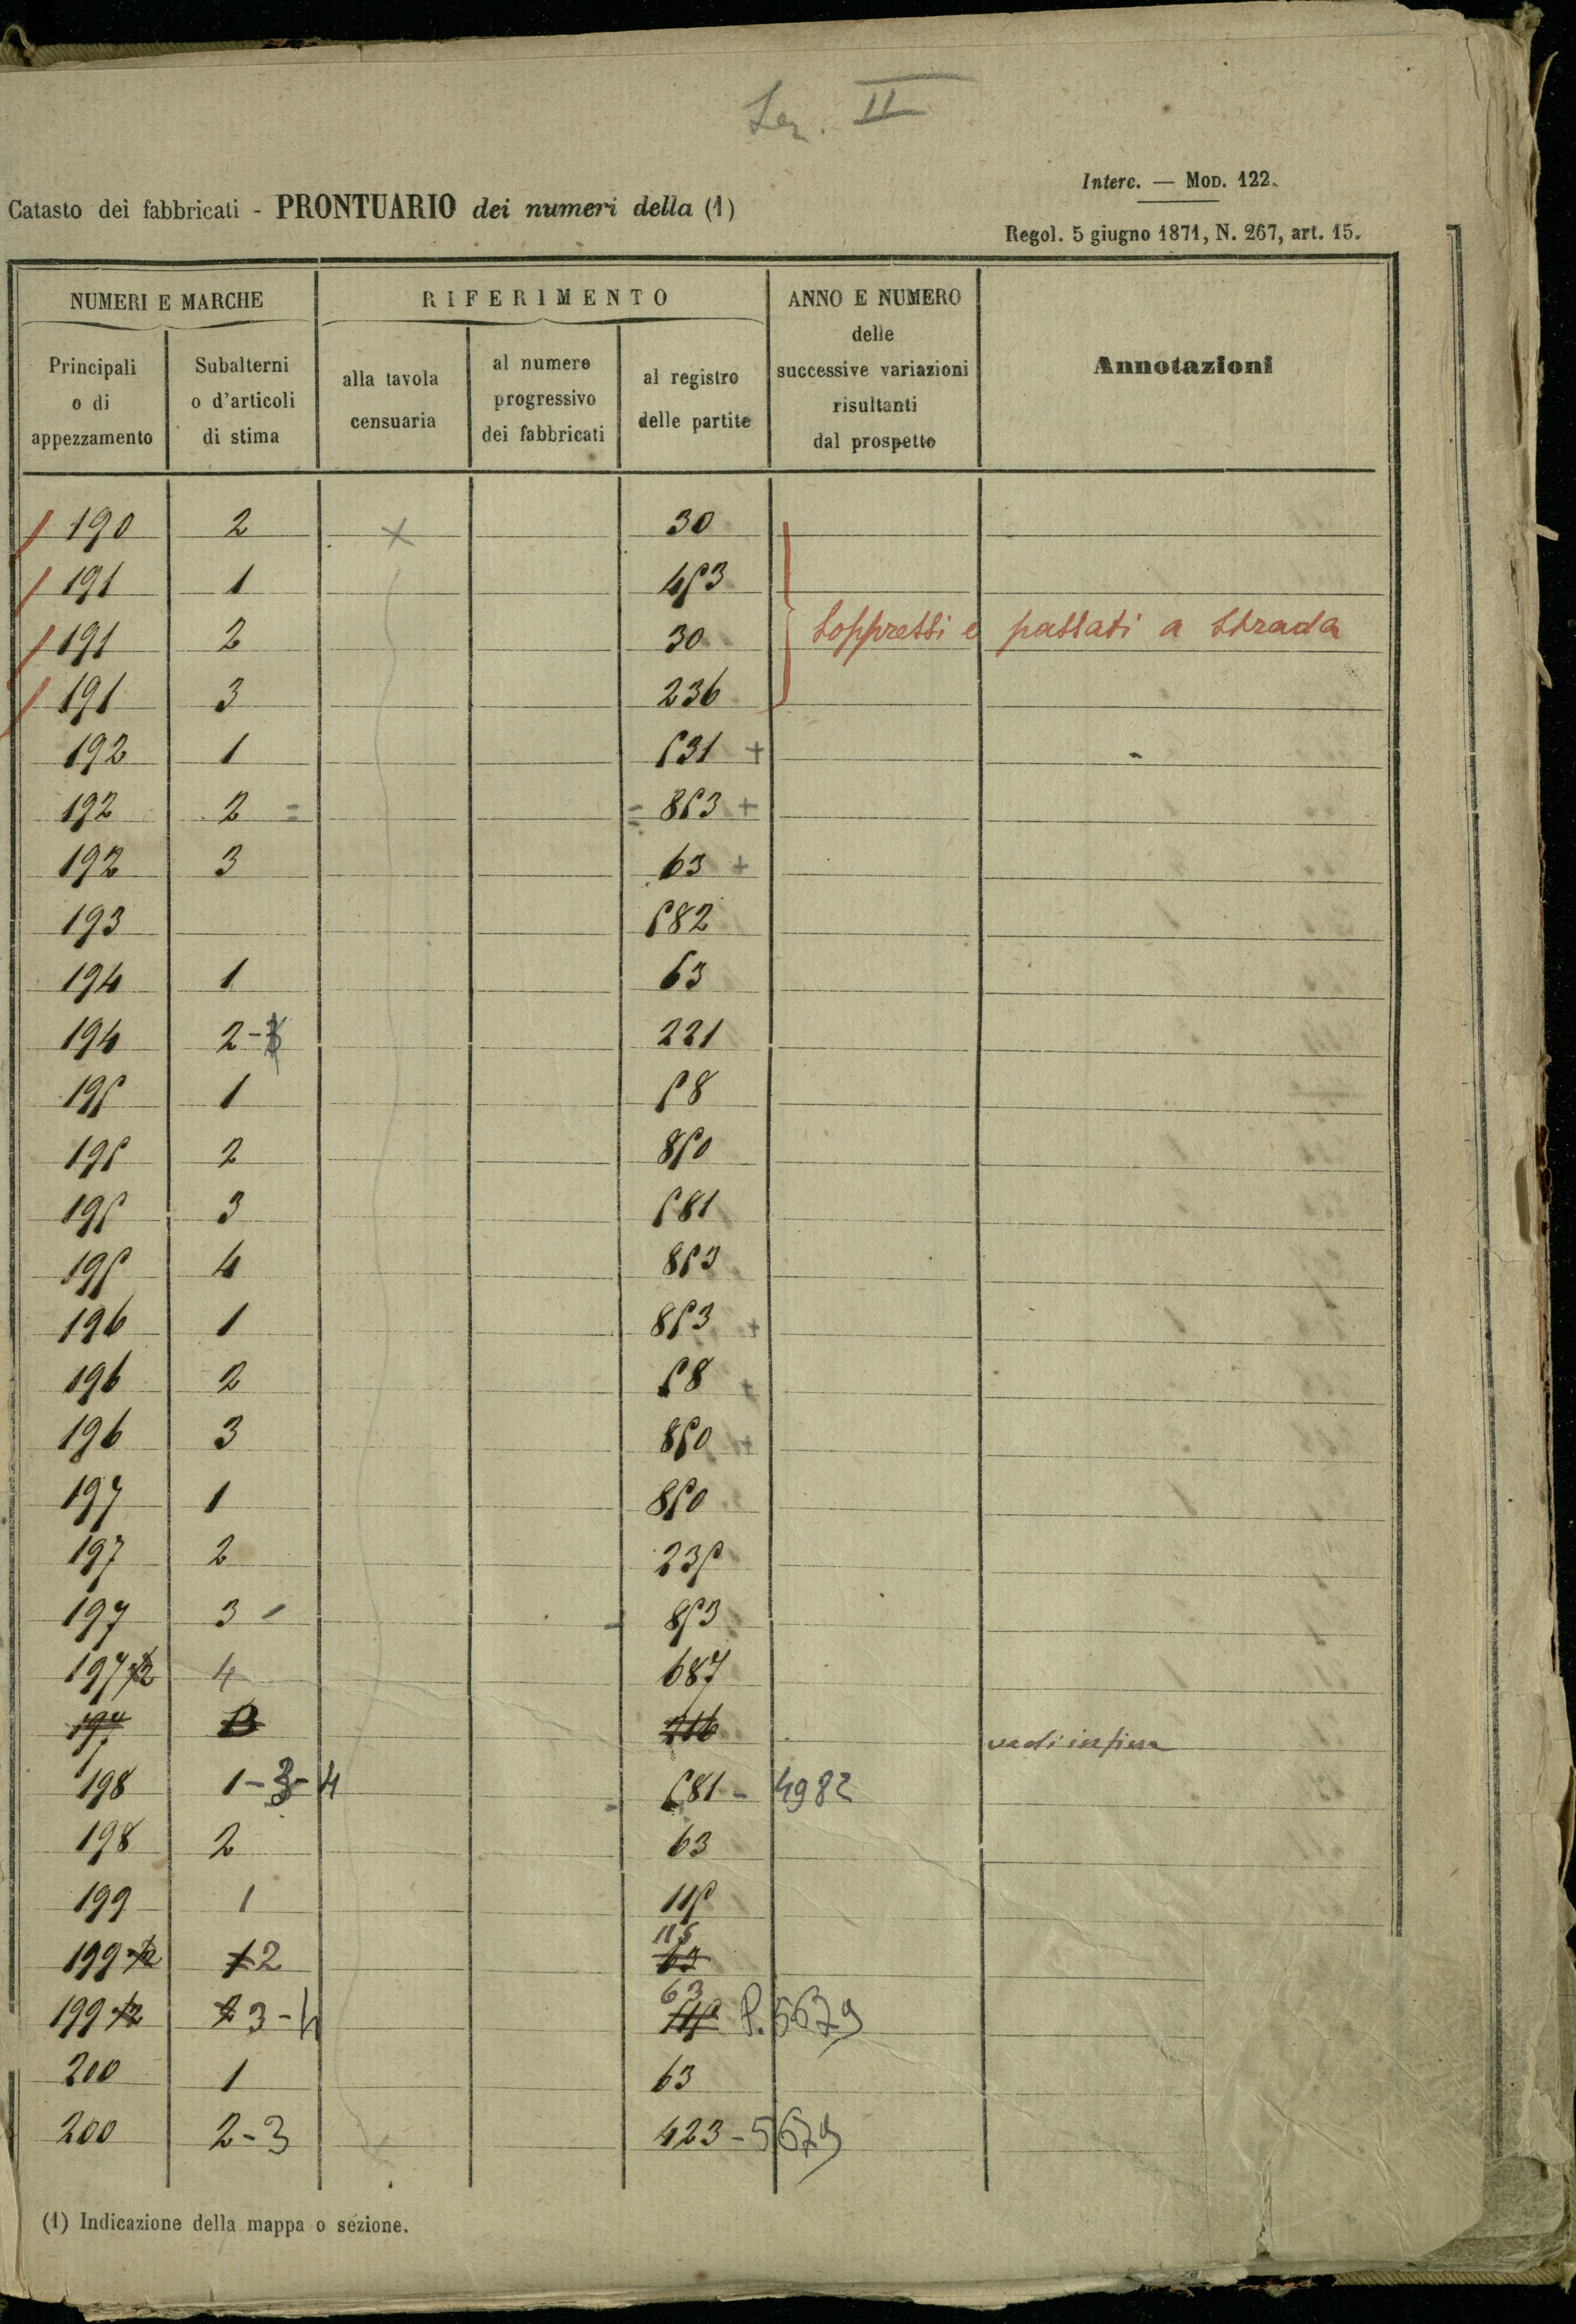 Sez. II
Interc. — MOD. 122.
Catasto dei fabbricati - PRONTUARIO dei numeri della (1)
Regol. 5 giugno 1871, N. 267, art. 15.
NUMERI E MARCHE
Principali o di appezzamento
Subalterni o d'articoli di stima
RIFERIMENTO
alla tavola censuaria
al numero progressivo dei fabbricati
al registro delle partite
ANNO E NUMERO delle successive variazioni risultanti dal prospetto
Annotazioni
190 2 × 30
191 1 453
191 2 30 Soppressi e passati a Strada
191 3 236
192 1 531 +
192 2 = = 853 +
192 3 63 +
193 582
194 1 63
194 2-3 221
195 1 58
195 2 850
195 3 581
195 4 853
196 1 853 +
196 2 58 +
196 3 850 +
197 1 850
197 2 235
197 3 - - 853
197 4 687
197 216 vedi in fine
198 1-3-4 581 - 4982
198 2 63
199 1 115
199 1/2 1 2 115 63
199 1/2 2 3-4 63 115 P. 5679
200 1 63
200 2-3 423-5679
(1) Indicazione della mappa o sezione.